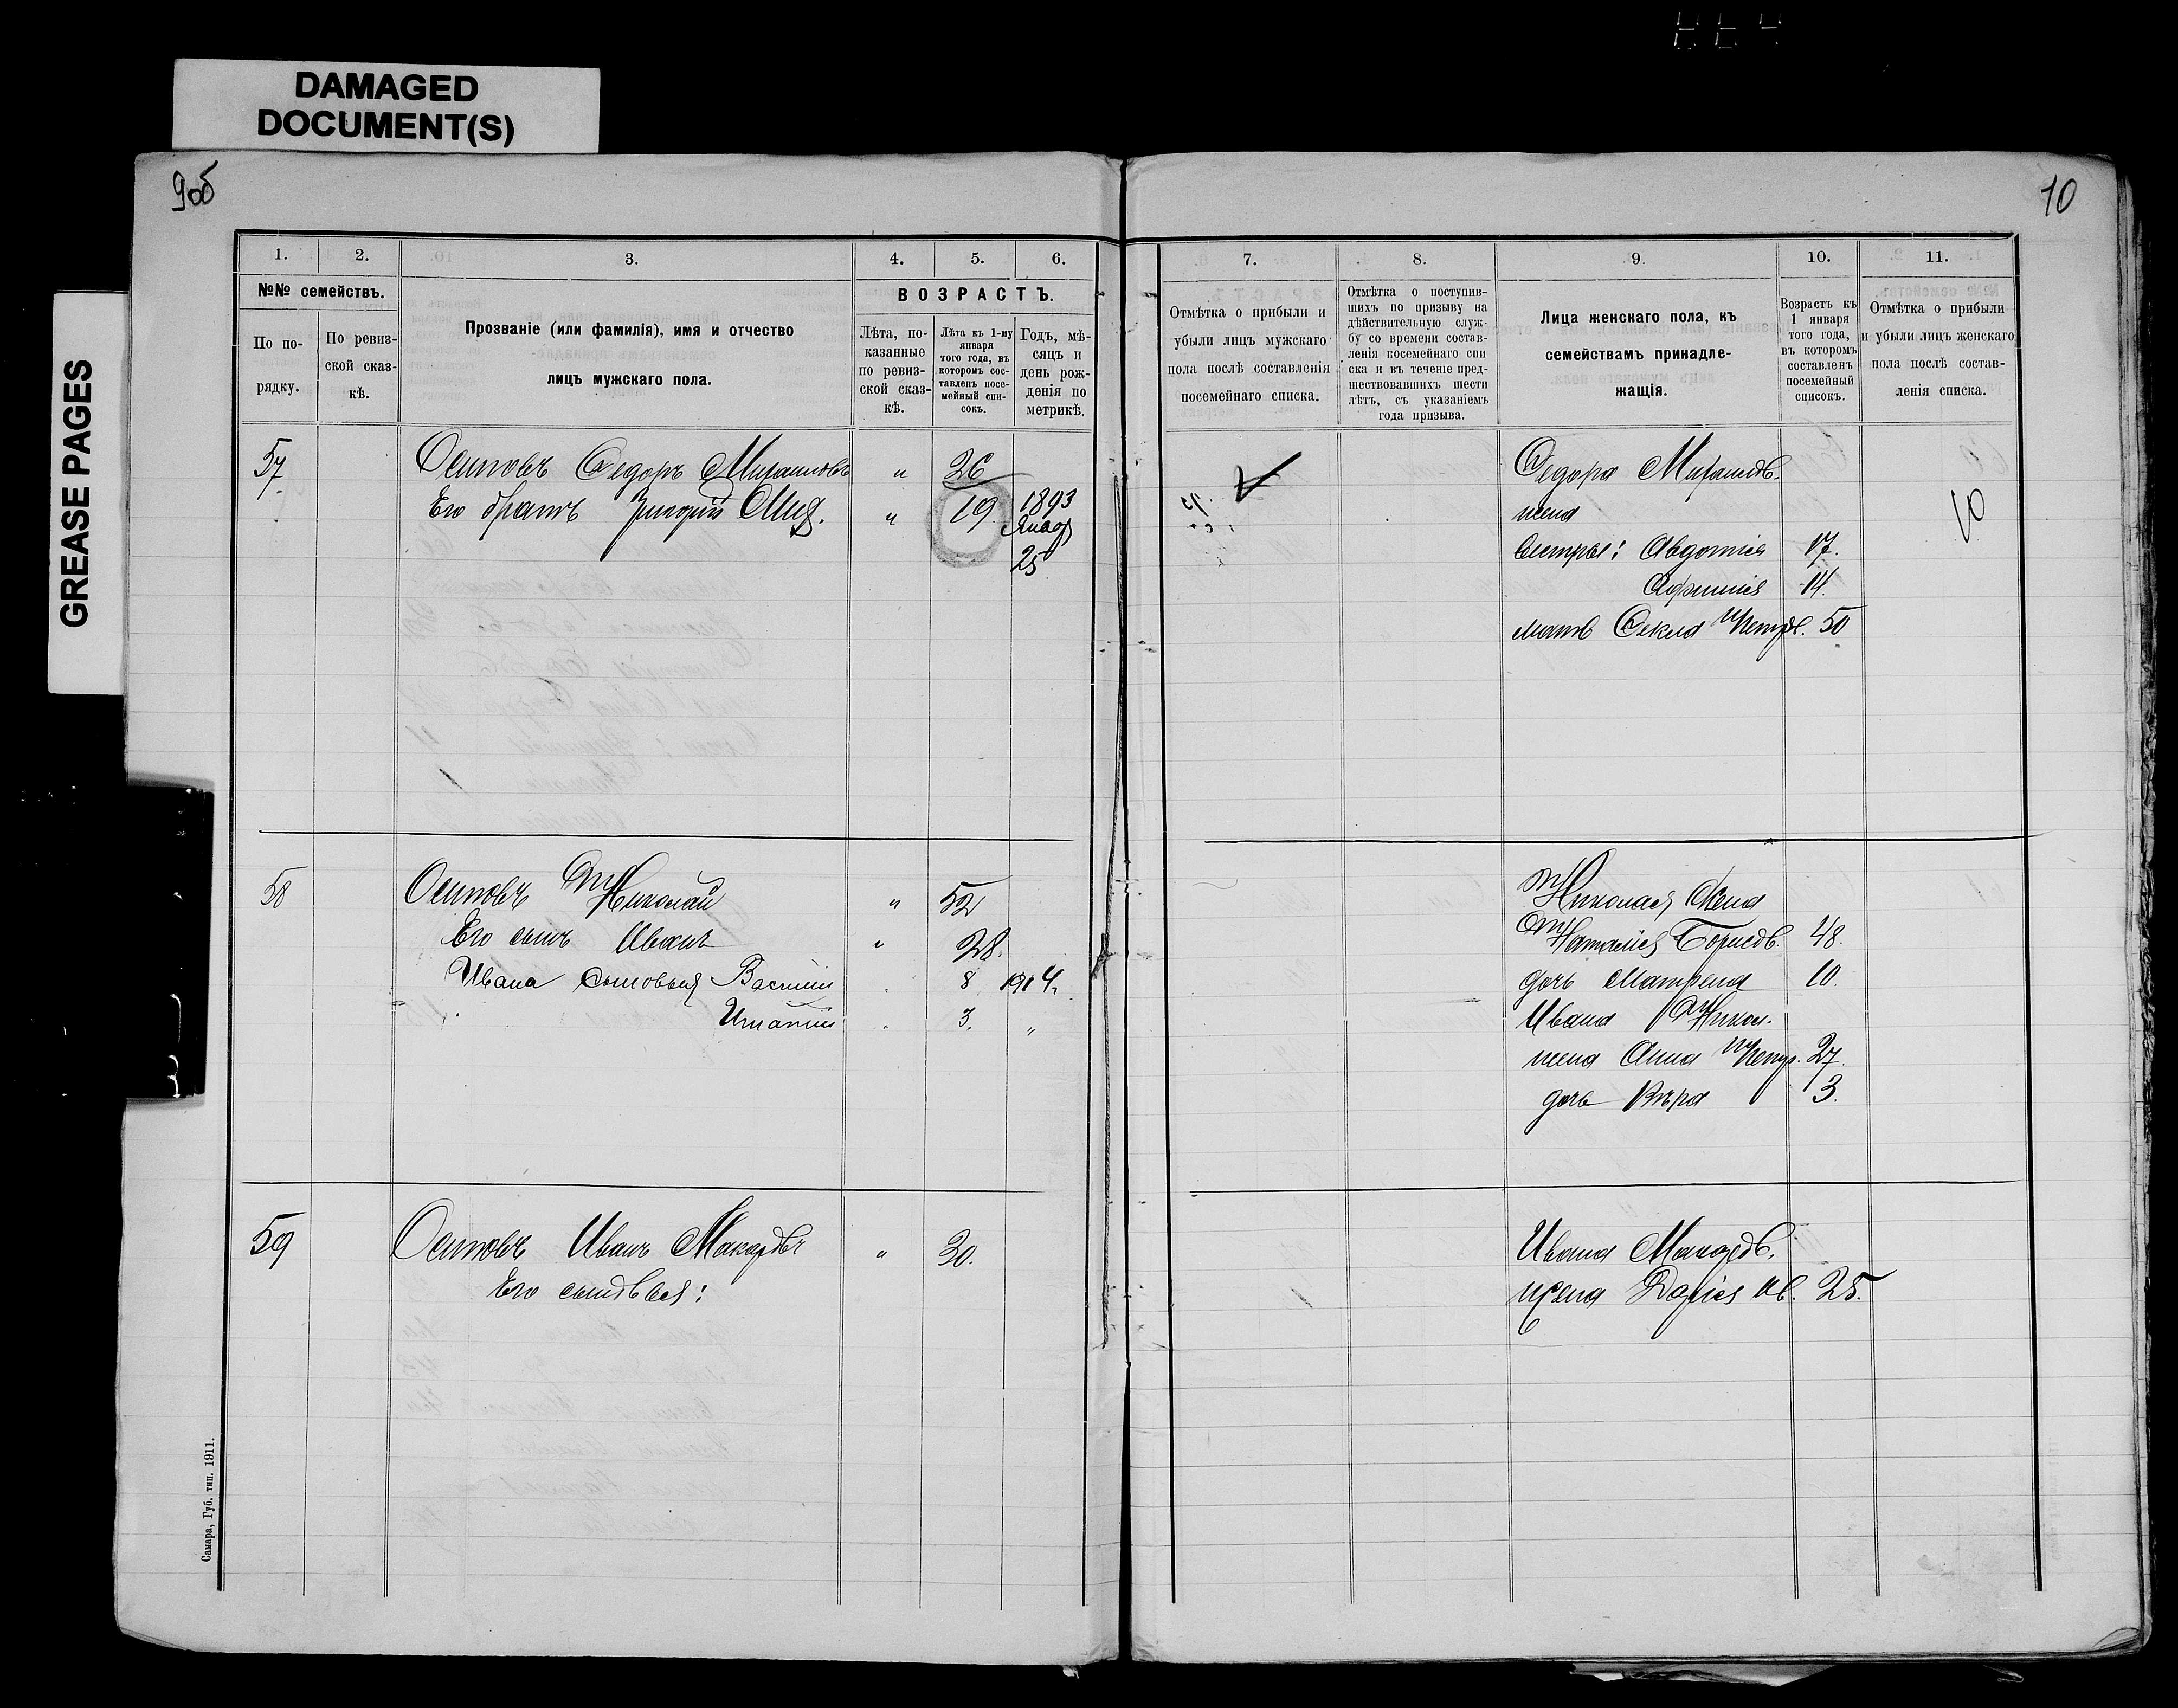 DAMAGED
DOCUMENT(S)
GREASE PAGES
9об
10
1.
2.
3.
4.
5.
6.
№№ семействъ.
По по-
рядку.
По ревиз-
ской сказ-
кѣ.
Прозваніе (или фамилія), имя и отчество
лицъ мужскаго пола.
ВОЗРАСТЪ.
Лѣта, по-
казанные
по ревиз-
ской сказ-
кѣ.
Лѣта къ 1-му
января
того года, въ
которомъ сос-
тавленъ посе-
мейный спи-
сокъ.
Годъ, мѣ-
сяцъ и
день рож-
денія по
метрикѣ.
57
Осиповъ Ѳедоръ Михаиловъ " 26
Его братъ Григорій Мих. " 19 1893
Янв
25
58
Осиповъ Николай " 52
Его сынъ Иванъ " 28.
Ивана сыновья Василій 8 1904
Игнатій 3. "
59
Осиповъ Иванъ Макаровъ " 30.
Его сыновья:
Самара, Губ. тип. 1911.
7.
8.
9.
10.
11.
Отмѣтка о прибыли и
убыли лицъ мужскаго
пола послѣ составленія
посемейнаго списка.
Отмѣтка о поступив-
шихъ по призыву на
дѣйствительную служ-
бу со времени состав-
ленія посемейнаго спи
ска и въ теченіе пред-
шествовавшихъ шести
лѣтъ, съ указаніемъ
года призыва.
Лица женскаго пола, къ
семействамъ принадле-
жащія.
Возрастъ къ
1 января
того года,
въ которомъ
составленъ
посемейный
списокъ.
Отмѣтка о прибыли
и убыли лицъ женскаго
пола послѣ состав-
ленія списка.
Ѳедора Михаилов.
жена
сестры: Авдотія 17.
Афимія 14.
мать Ѳекла Петров. 50
10
Николая жена
Наталія Борисов. 48.
дочь Матрена 10.
Ивана Никол.
жена Анна Петр. 27.
дочь Вѣра 3.
Ивана Макаров.
жена Дарія Ив. 25.